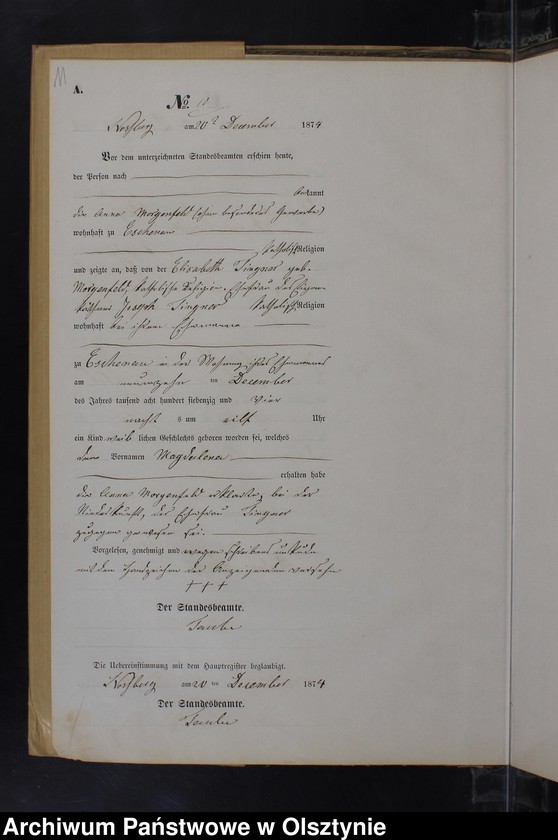 11
A.
No. 11
am 20t December 1874
Vor dem unterzeichneten Standesbeamten erschien heute,
der Person nach
bekannt
die Anna Morgenfeld (ohne besonderes Gewerbe)
wohnhaft zu Eschenau
katholischer Religion
und zeigte an, daß von der Elisabeth geb.
Morgenfeldt katholische Religion, Ehefrau des
Joseph katholischer Religion
wohnhaft bei ihrem Ehemanne
zu Eschenau in der Wohnung ihres Ehemannes
am neunzehn ten December
des Jahres tausend acht hundert siebenzig und vier
nachts um eilf Uhr
ein Kind weib lichen Geschlechts geboren worden sei, welches
den Vornamen Magdalena
erhalten habe
die Anna Morgenfeldt erklärte, bei der
Niederkunft der Ehefrau
zugegen gewesen sei.
Vorgelesen, genehmigt und wegen Schreibens unkunde
mit dem Handzeichen der Anzeigenden versehen
+++
Der Standesbeamte.
Die Uebereinstimmung mit dem Hauptregister beglaubigt.
am 20 ten December 1874
Der Standesbeamte.
Archiwum Państwowe w Olsztynie